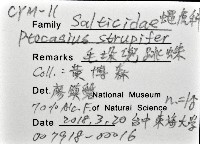 CYM-11
Family Salticidae 蠅虎科
Ptocasius strupifer
Remarks 毛垛兜跳蛛
Coll.: 黃博森
Det. 廖鎮磐 National Museum
70% Alc. F. of Natural Science n=1♀
Date 2018.3.20 台中東海大學
007918-00016